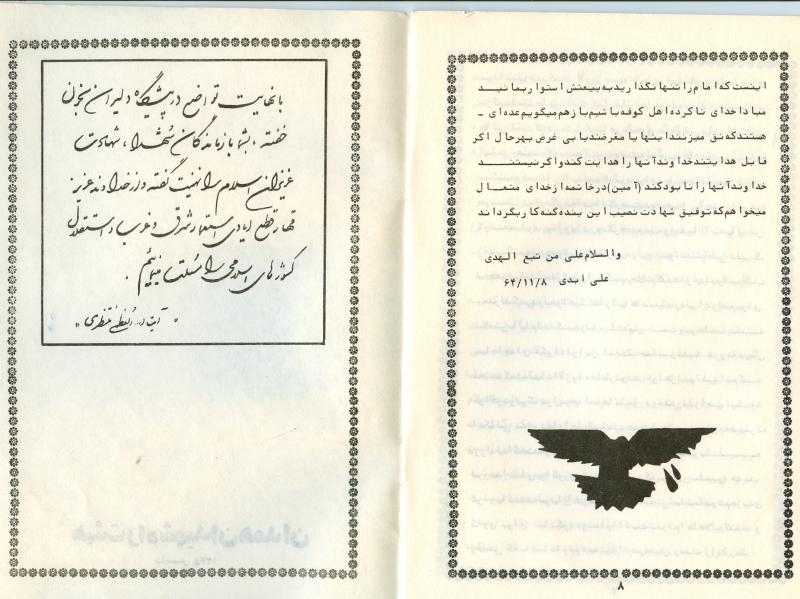 اینست که امام را تنها نگذارید به بیعتش استوار بمانید
مبادا خدای نا کرده اهل کوفه باشیم باز هم میگویم عده ای -
هستند که نق میزنند اینها یا مغرضند یا بی غرض بهر حال اگر
قابل هدایتند خداوند آنها را هدایت کند و اگر نیستند
خداوند آنها را نابود کند (آمین) در خاتمه از خدای متعال
میخواهم که توفیق شهادت نصیب این بنده گنه کار بگرداند
والسلام علی من تبع الهدی
علی ابدی ۶۴/۱۱/۸
۸
با نهایت تواضع در پیشگاه دلیران بخون
خفته ، بشما بازماندگان شهدا ، شهادت
عزیزان اسلام را تهنیت گفته و از خداوند عزیز
قهار قطع ایادی استعمار شرق و غرب و استقلال
کشورهای اسلامی را مسئلت مینمایم .
" آیت ا... العظمی منتظری "